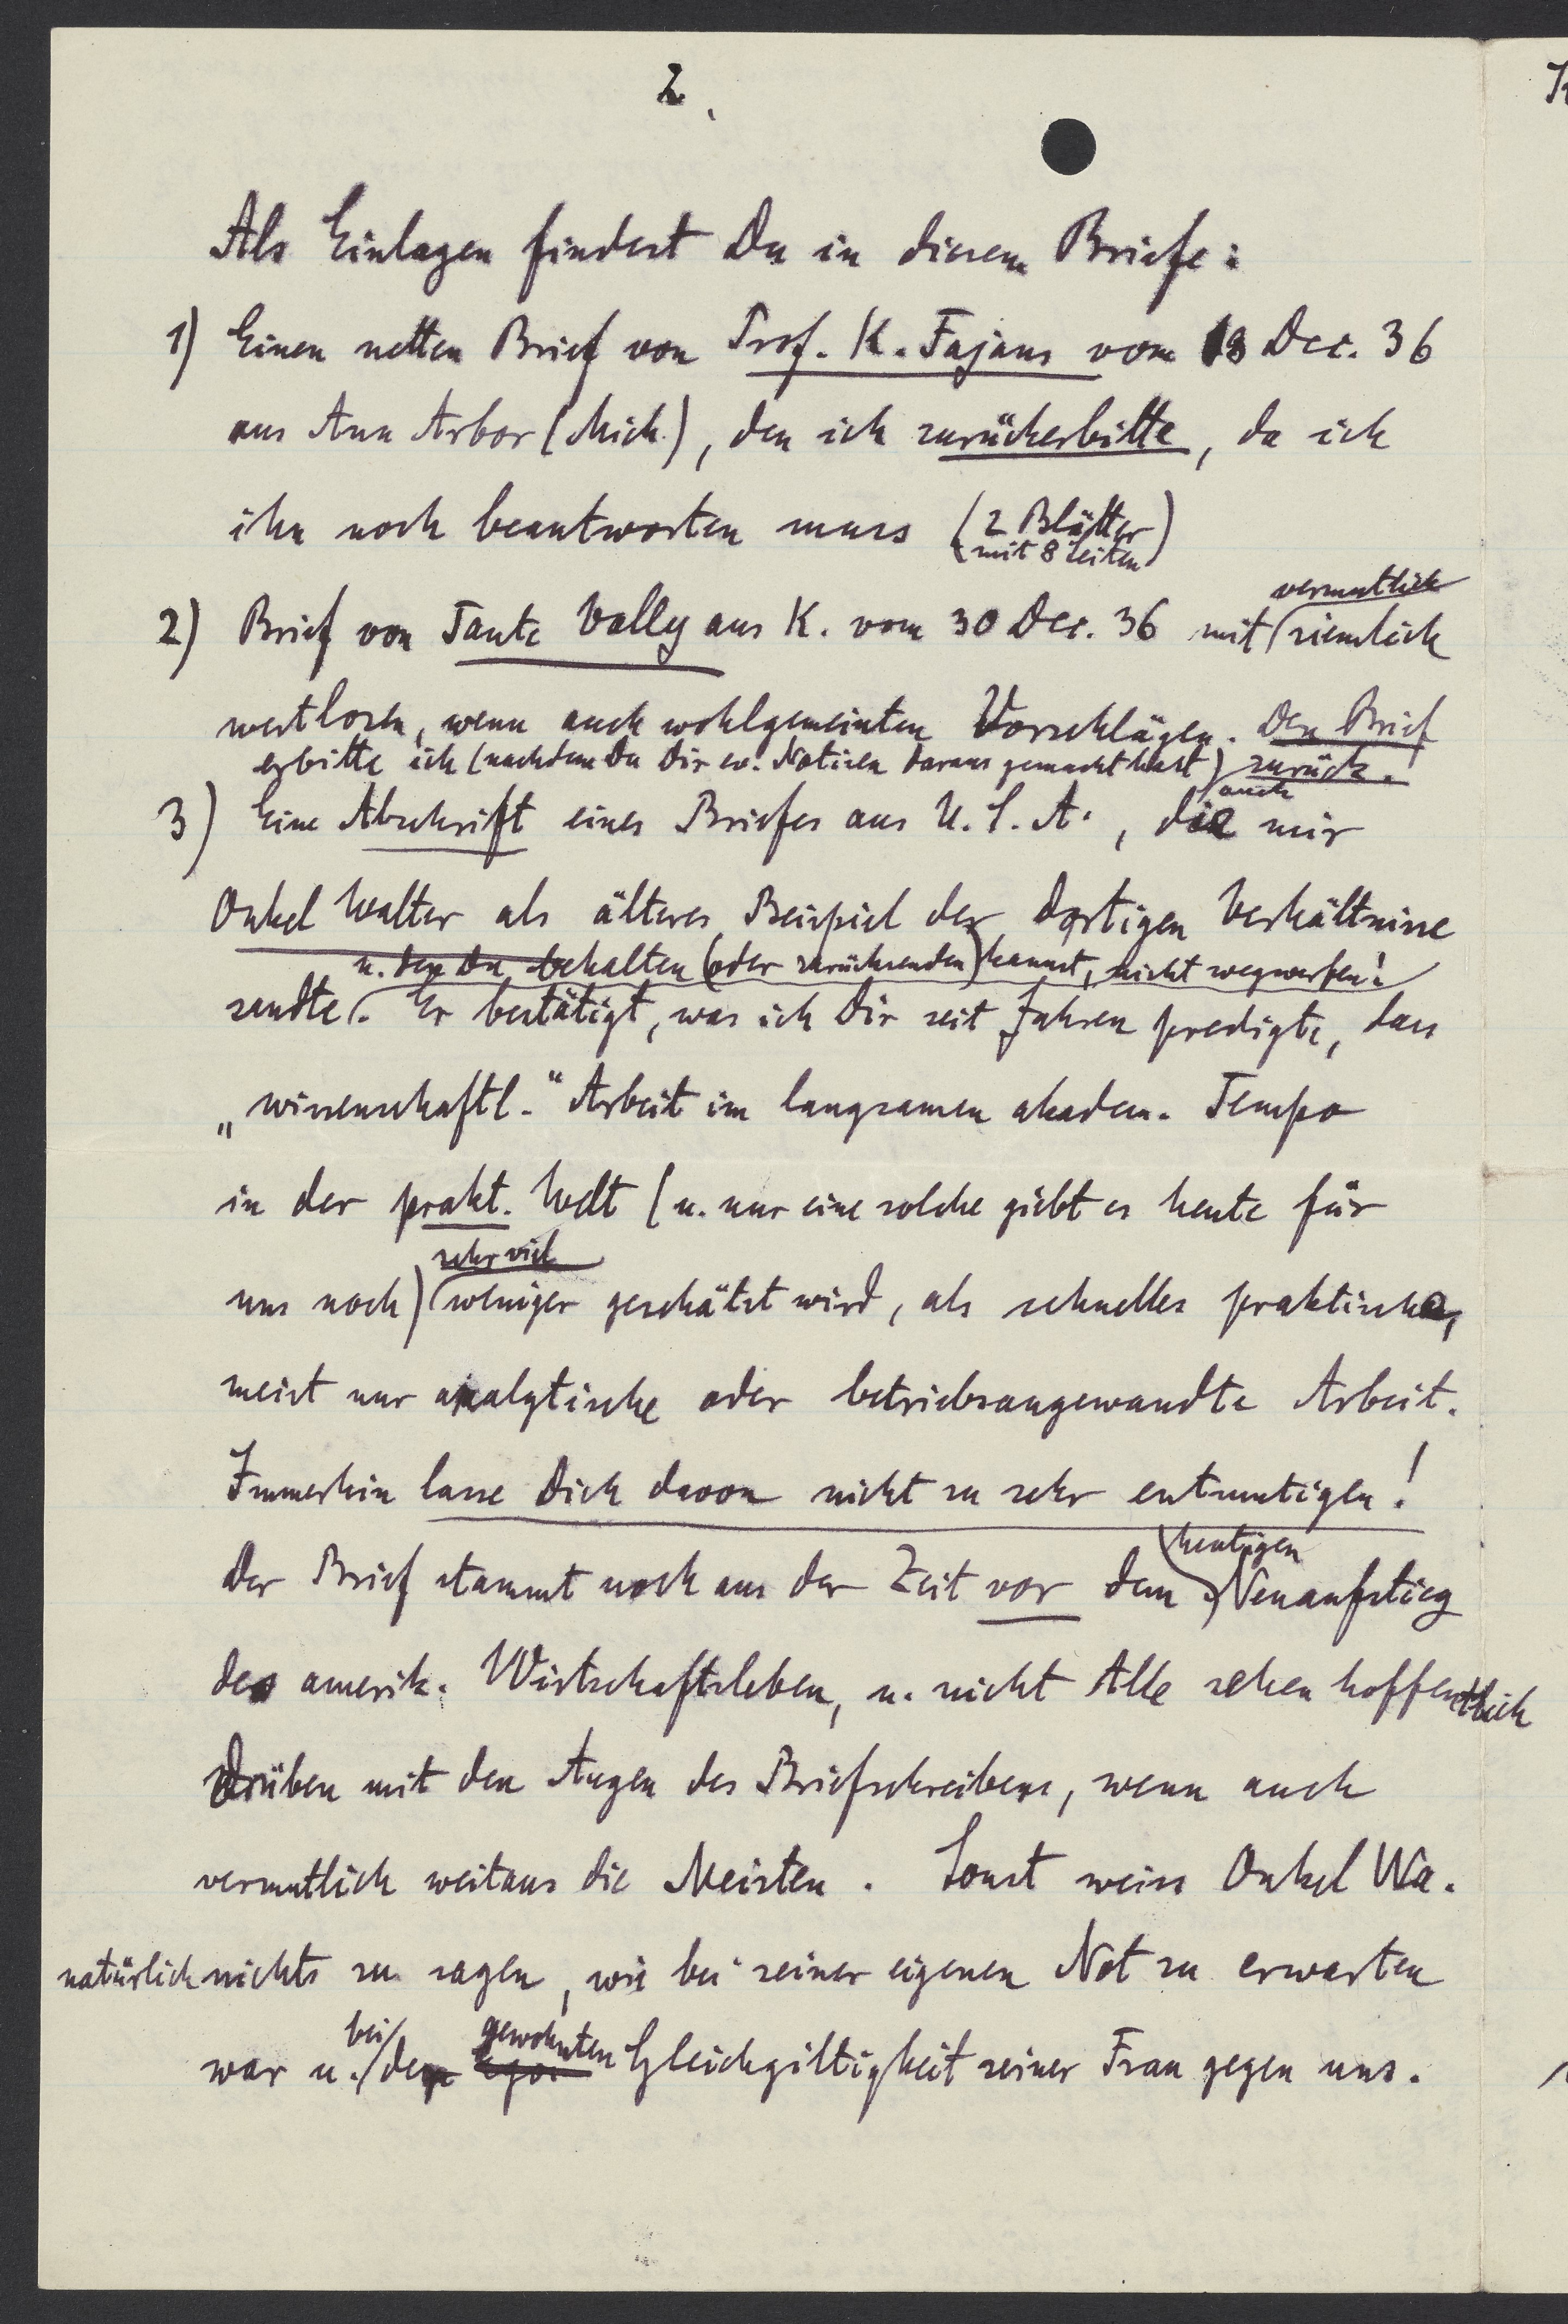 2.
Als Einlagen findest Du in diesem Briefe:
1) Einen netten Brief von Prof. K. Fajans vom 18 Dec. 36
aus Ann Arbor (Mich.), den ich zurückerbitte, da ich
ihn noch beantworten muss (2 Blätter
mit 8 Seiten)
vermutlich
2) Brief von Tante Vally aus K. vom 30 Dec. 36 mit ziemlich
wertlosen, wenn auch wohlgemeinten Vorschlägen. Den Brief
erbitte ich (nachdem Du Dir ev. Notizen daraus gemacht hast) zurück.
auch
3) Eine Abschrift eines Briefes aus U.S.A., die mir
Onkel Walter als älteres Beispiel der dortigen Verhältnisse
u. den Du behalten (oder zurücksenden) kannst, nicht wegwerfen!
sendte. Er bestätigt, was ich Dir seit Jahren predigte, dass
„wissenschaftl." Arbeit im langsamen akadem. Tempo
in der prakt. Welt (u. nur eine solche giebt es heute für
sehr viel
uns noch) weniger geschätzt wird, als schnelles praktische,
meist nur analytische oder betriebsangewandte Arbeit.
Immerhin lasse Dich davon nicht zu sehr entmutigen!
heutigen
Der Brief stammt noch aus der Zeit vor dem Neuaufstieg
des amerik. Wirtschaftsleben, u. nicht Alle sehen hoffentlich
drüben mit den Augen des Briefschreibers, wenn auch
vermutlich weitaus die Meisten. Sonst weiss Onkel Wa.
natürlich nichts zu sagen, wie bei seiner eigenen Not zu erwarten
bei gewohnten
war u. der Gleichgiltigkeit seiner Frau gegen uns.